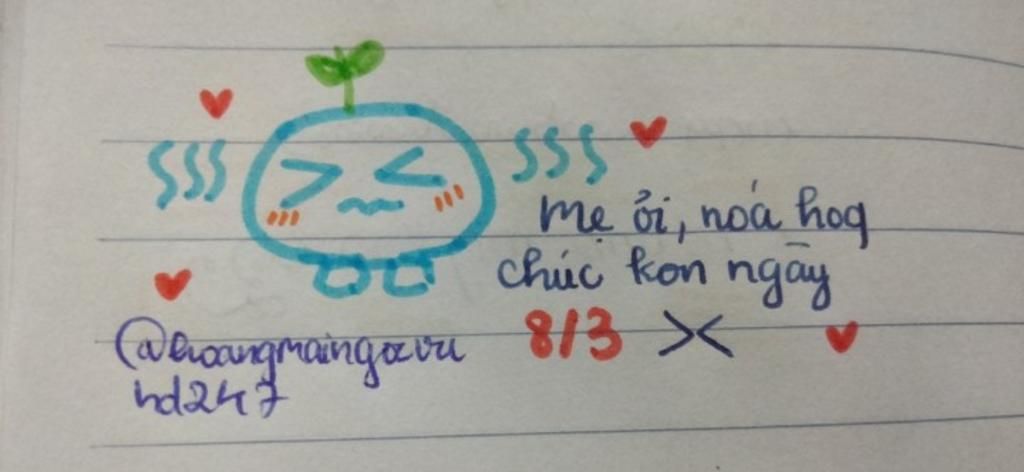 Mẹ ỏi, noá hoq
chúc kon ngầy
8/3 ><
@hoangmaingocvu
hd247